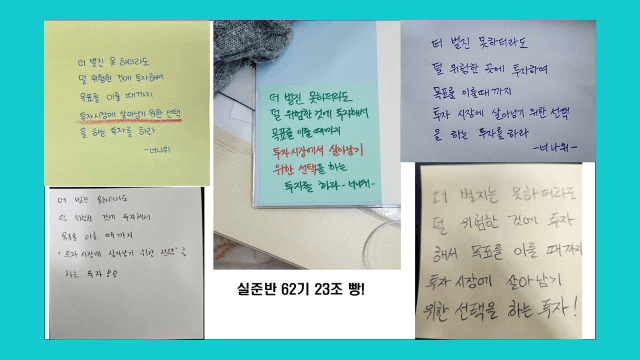 더 벌진 못하더라도
덜 위험한 것에 투자해서
목표를 이룰 때까지
투자시장에 살아남기 위한 선택
을 하는 투자를 하라
-너나위
더 벌진 못하더라도
덜 위험한 것에 투자해서
목표를 이룰 때까지
투자시장에서 살아남기
위한 선택을 하는
투자를 하라 -너나위-
더 벌진 못하더라도
덜 위험한 곳에 투자하여
목표를 이룰때까지
투자 시장에 살아남기 위한 선택
을 하는 투자를 하라
-너나위-
더 벌진 못하더라도
덜 위험한 것에 투자해서
목표를 이룰 때까지
"투자시장에 살아남기 위한 선택"을
하는 투자
더 벌지는 못하더라도
덜 위험한 것에 투자
해서 목표를 이룰 때까지
투자 시장에 살아남기
위한 선택을 하는 투자!
실준반 62기 23조 빵!